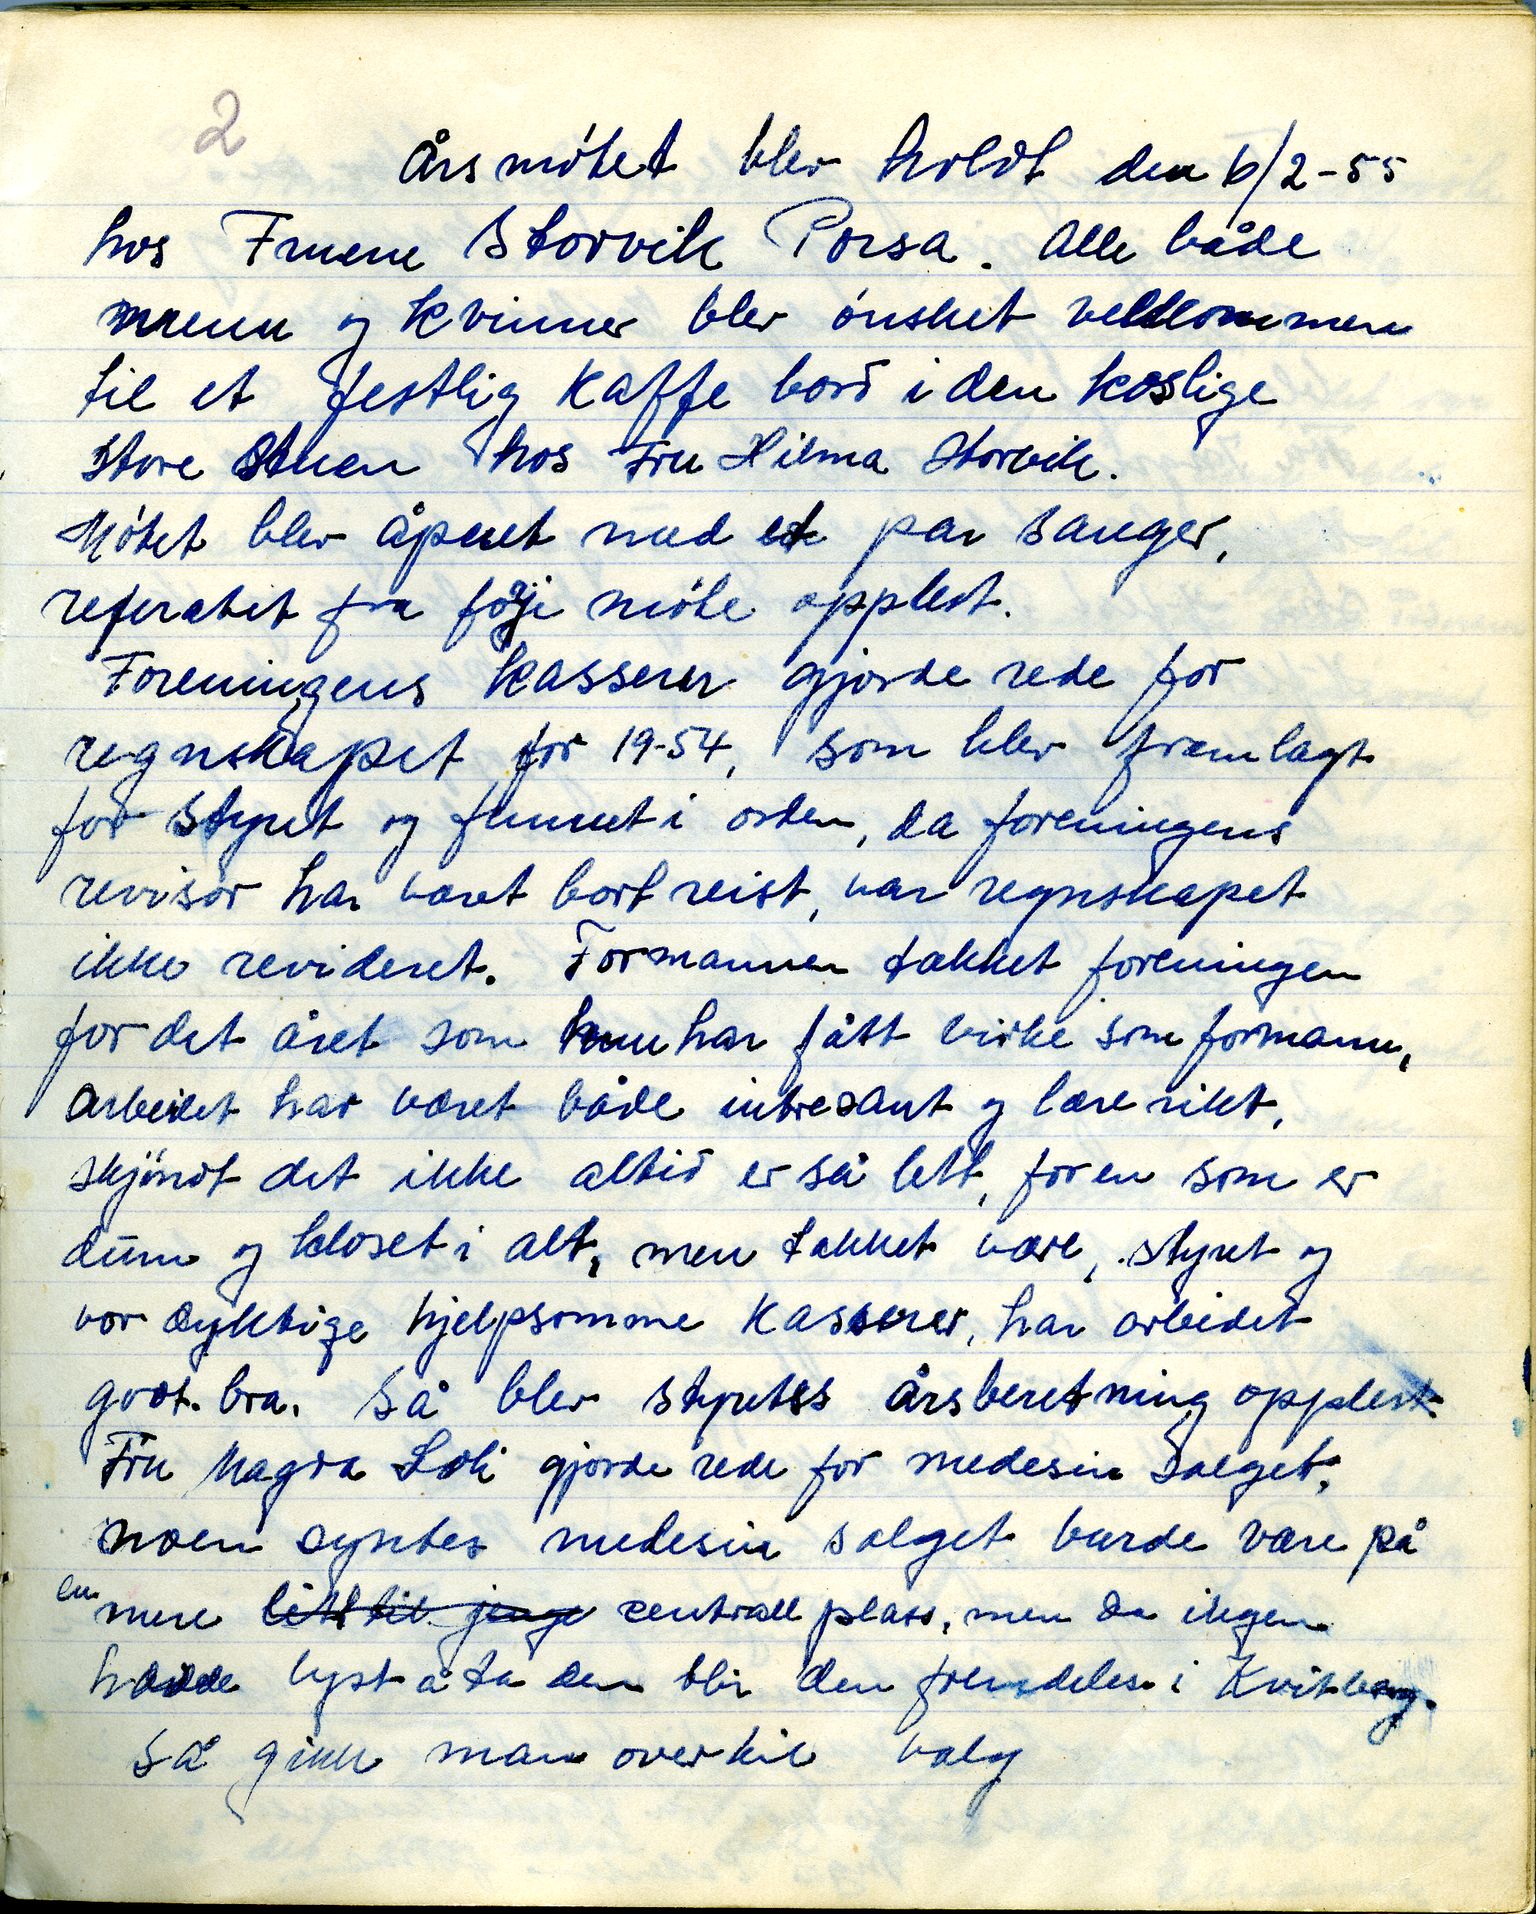 2
Årsmøtet blev holdt den 6/2-55
hos Fruene Storvik Porsa. Alle både
menn og kvinner blev ønsket velkommen
til et festlig kaffe bord i den koslige
store stuen hos Fru Hilma Storvik.
Møtet blev åpnet med et par sanger,
referatet fra føje møte opplest.
Foreningens kasserer gjorde rede for
regnskapet for 19-54, som blev fremlagt
for styret og funnet i orden, da foreningens
revisor har været bortreist, var regnskapet
ikke revideret. Formannen takket foreningen
for det året som hun har fått virke som formann,
arbeidet har været både intresant og lærerikt,
skjøndt det ikke altid er så lett, for en som er
dum og kloset i alt, men takket være, styret og
vor dyktige hjelpsomme kasserer, har arbeidet
gådt bra. Så blev styrets årsberetning opplest
Fru Magda gjorde rede for medesin salget,
noen syntes medesin salget burde være på
en mere litt til centrall plass, men da ingen
hadde lyst å ta den blir den fremdeles i Kvitberg.
Så gikk man over til valg